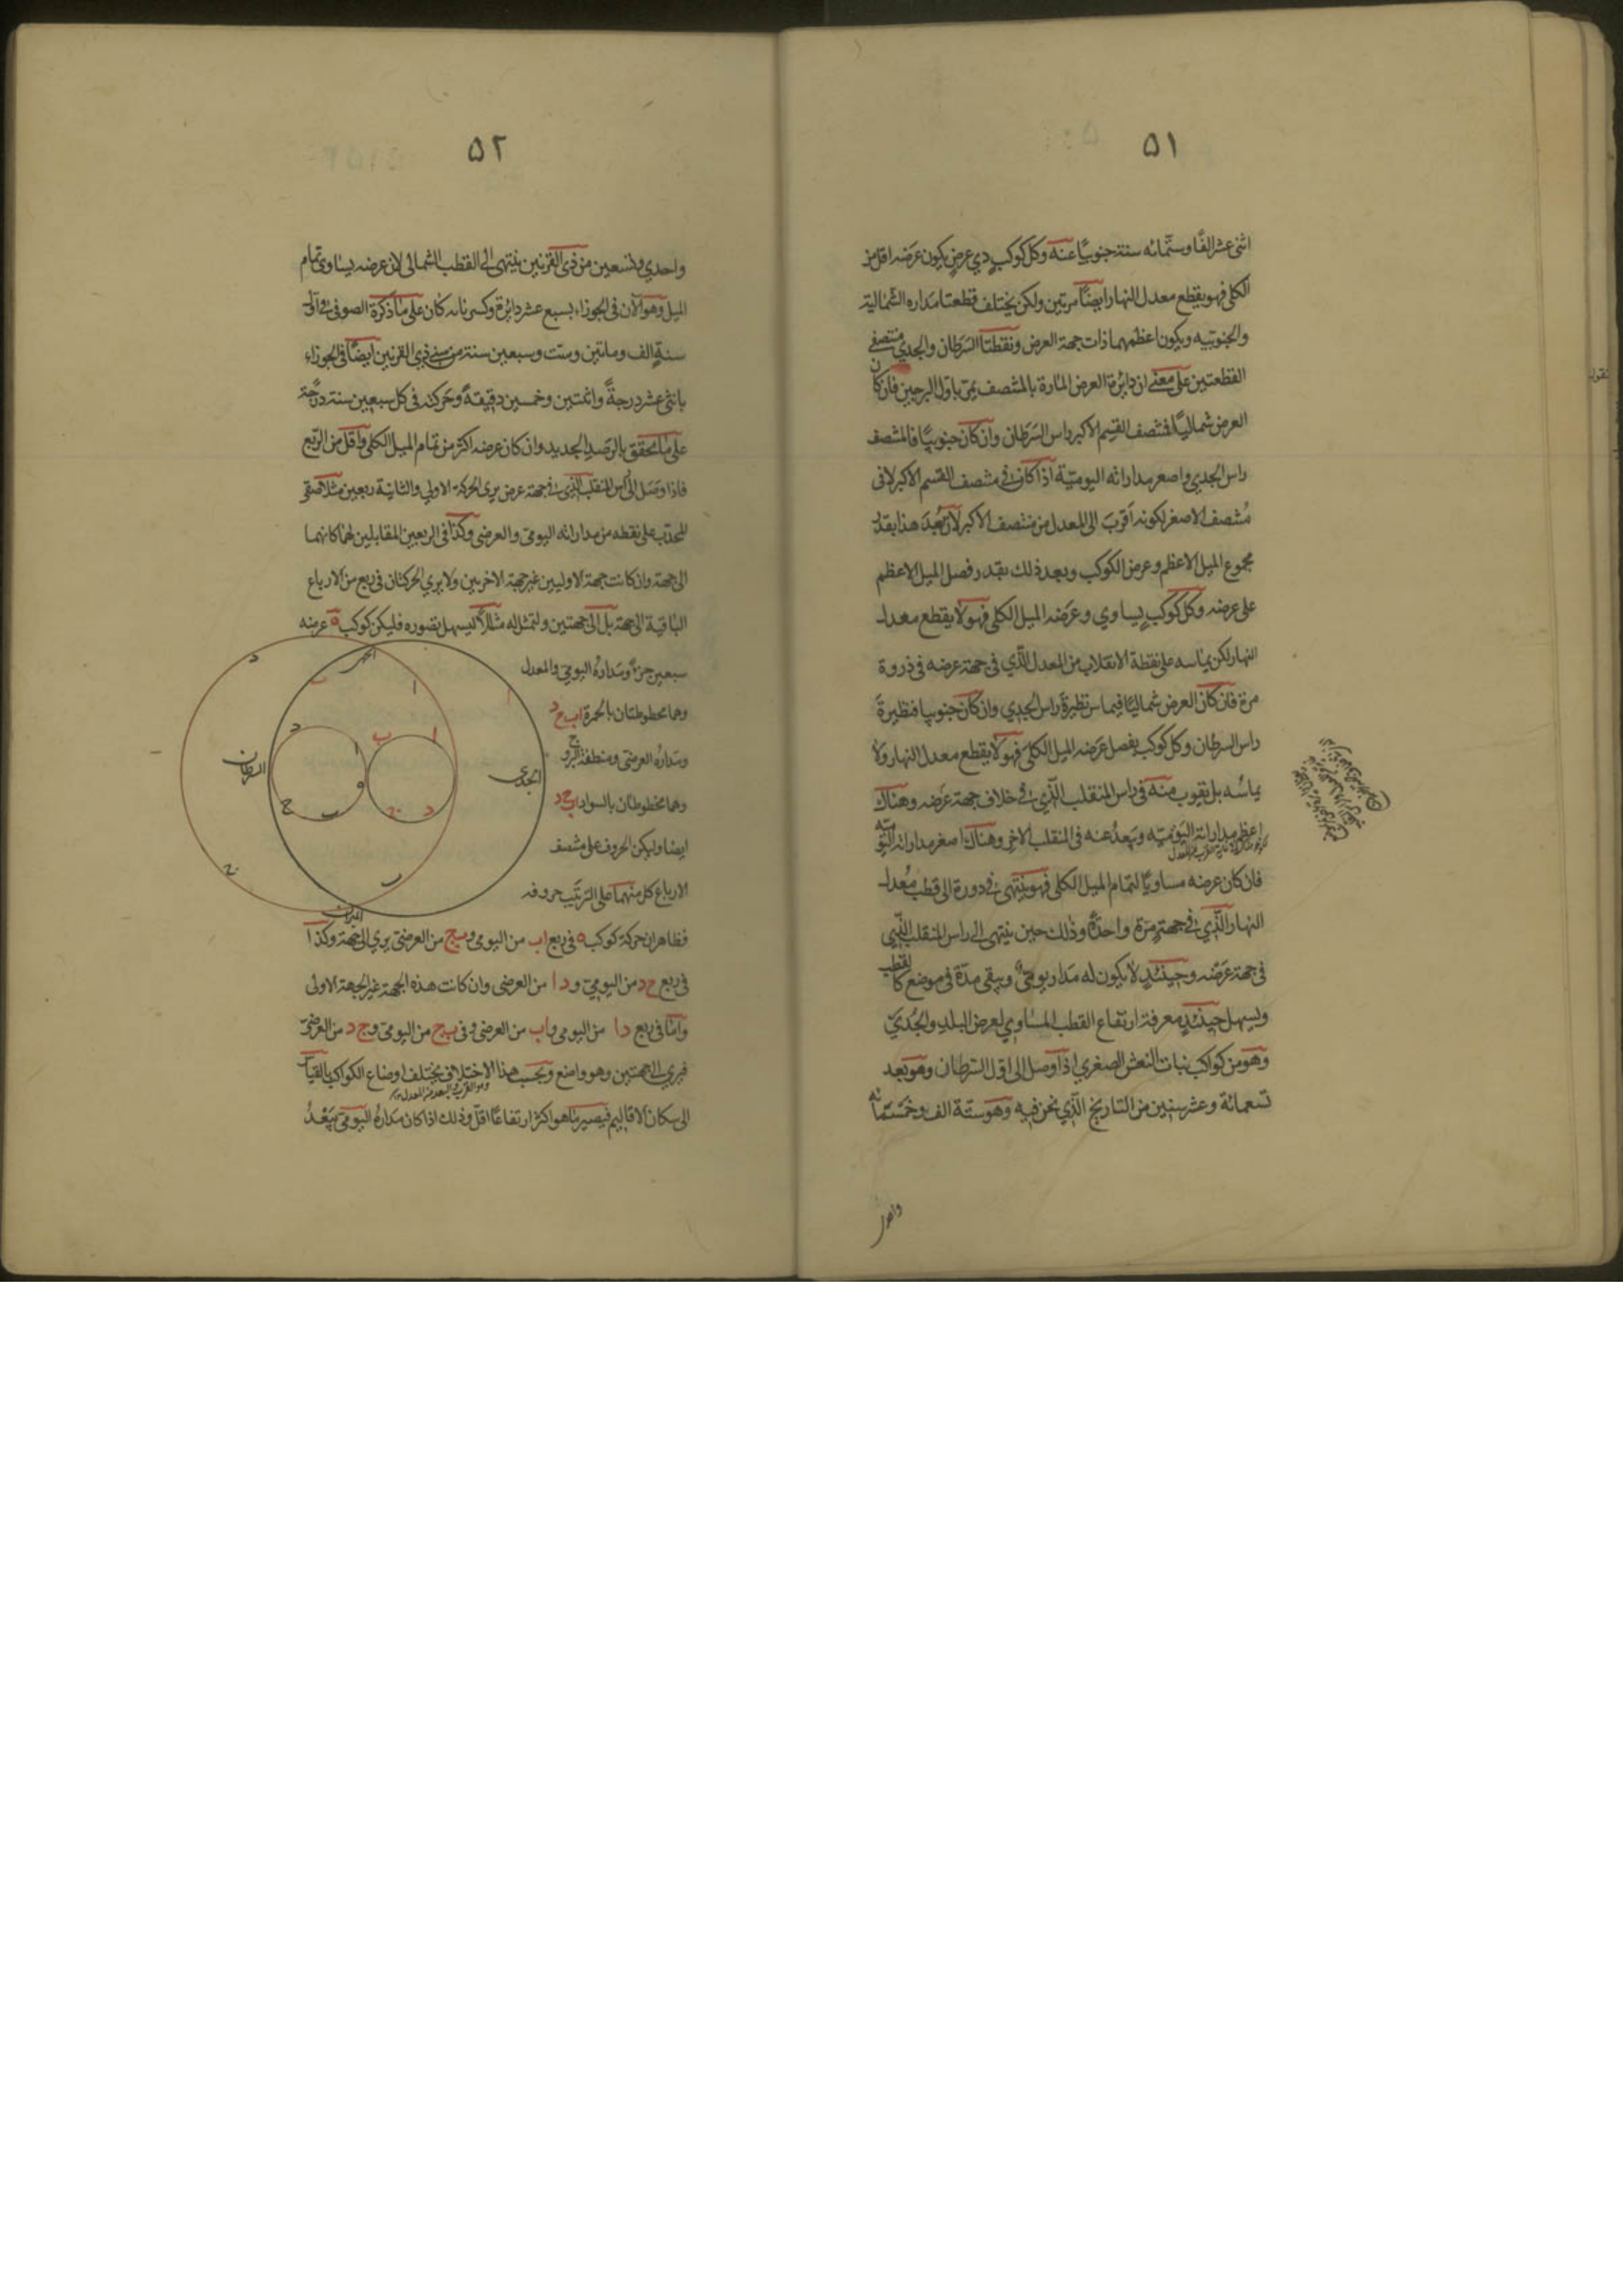 ٥١
اثنى عشر الفا وستمائه سنة جنوبيا عنه وكل كوكب ذي عرض يكون عرضه اقل من
الكلى فهو يقطع معدل النهار ايضا مرتين ولكن يختلف قطعتا مداره الشمالية
والجنوبيه ويكون اعظمهما ذات جهة العرض ونقطتا السرطان والجدي منتصفى
القطعتين على معنى ان دائرة العرض المارة بالمنتصف يمر باول البرجين فان كان
العرض شماليا فمنتصف القسم الاكبر راس السرطان وان كان جنوبيا فالمنتصف
راس الجدي واصغر مداراته اليومية اذا كان فى منتصف القسم الاكبر لا فى
منتصف الاصغر لكونه اقرب الى المعدل من منتصف الاكبر لان بعد هذا بقدر
مجموع الميل الاعظم وعرض الكوكب وبعد ذلك بقدر فضل الميل الاعظم
على عرضه وكل كوكب يساوي وعرضه الميل الكلى فهو لا يقطع معدل
النهار لكن يماسه على نقطة الانقلاب من المعدل الذي فى جهة عرضه فى ذروة
مرة فان كان العرض شماليا فيماس نظيرة راس الجدي وان كان جنوبيا فنظيرة
راس السرطان وكل كوكب يفضل عرضه الميل الكلى فهو لا يقطع معدل النهار ولا
يماسه بل يقرب منه فى راس المنقلب الذي فى خلاف جهة عرضه وهناك
اعظم مداراته اليومية ويبعد عنه فى المنقلب الاخر وهناك اصغر مداراته اليومية
فان كان عرضه مساويا لتمام الميل الكلى فهو ينتهى فى دورة الى قطب معدل
النهار الذي فى جهته مرة واحدة وذلك حين ينتهى الى راس المنقلب الذي
فى جهة عرضه وحينئذ لا يكون له مدار يومى ويبقى مدة فى موضع كالقطب
ولسهل حينئذ معرفة ارتفاع القطب المساوي لعرض البلد والجدي
وهو من كواكب بنات النعش الصغرى اذا وصل الى اول السرطان وهو بعد
تسعمائة وعشر سنين من التاريخ الذي نحن فيه وهو سنة الف وخمسمائه
واحدى
٥٢
واحدي وتسعين من ذى القرنين ينتهى الى القطب الشمالى لان عرضه يساوى تمام
الميل وهو الان فى الجوزاء بسبع عشر دائرة وكسر نانه كان على ما ذكره الصوفى فى اول
سنة الف وماتين وست وسبعين سنة من سنى ذى القرنين ايضا فى الجوزاء
باثنى عشر درجة واثنتين وخمسين دقيقة وحركته فى كل سبعين سنة درجة
على ما تحقق بالرصد الجديد وان كان عرضه اكثر من تمام الميل الكلى واقل من الربع
فاذا وصل الى راس المنقلب الذي فى جهة عرض يرى الحركة الاولى والثانية ربعين متلاصقى
المحدب على نقطه من مداراته اليومى والعرضى وكذا فى الربعين المقابلين لهما كانهما
الى جهة وان كانت جهة الاوليين غير جهة الاخريين ولا يرى الحركتان فى ربع من الارباع
الباقية الى جهة بل الى جهتين ولنمثل له مثالا ليسهل تصوره فليكن كوكب ه عرضه
سبعين جزء ومداره اليومى والمعدل
وهما مخطوطتان بالحمرة اب ج د
ومداره العرضى ومنطقة البروج
وهما مخطوطان بالسواد اب ج د
ايضا وليكن الحروف على منتصف
الارباع كل منهما على الترتيب حروفه
د
ب
ا
ا
الحمل
د
ا
ب
ا
السرطان
الجدى
ج
ب
ج
د
ج
ب
الميزان
فظاهر ان حركة كوكب ه فى ربع اب من اليومى وبج من العرضى يرى الى جهة وكذا
فى ربع ج د من اليومى ود ا من العرضى وان كانت هذه الجهة غير الجهة الاولى
واما فى ربع دا من اليومى واب من العرضى وفى بج من اليومى وج د من العرضى
فيرى الى جهتين وهو واضع وبحسب هذا الاختلاف يختلف اوضاع الكواكب بالقياس
وهو القرب والبعد من المعدل
الى سكان الاقاليم فيصير ما هو اكثر ارتفاعا اقل وذلك اذا كان مداره اليومى يبعد